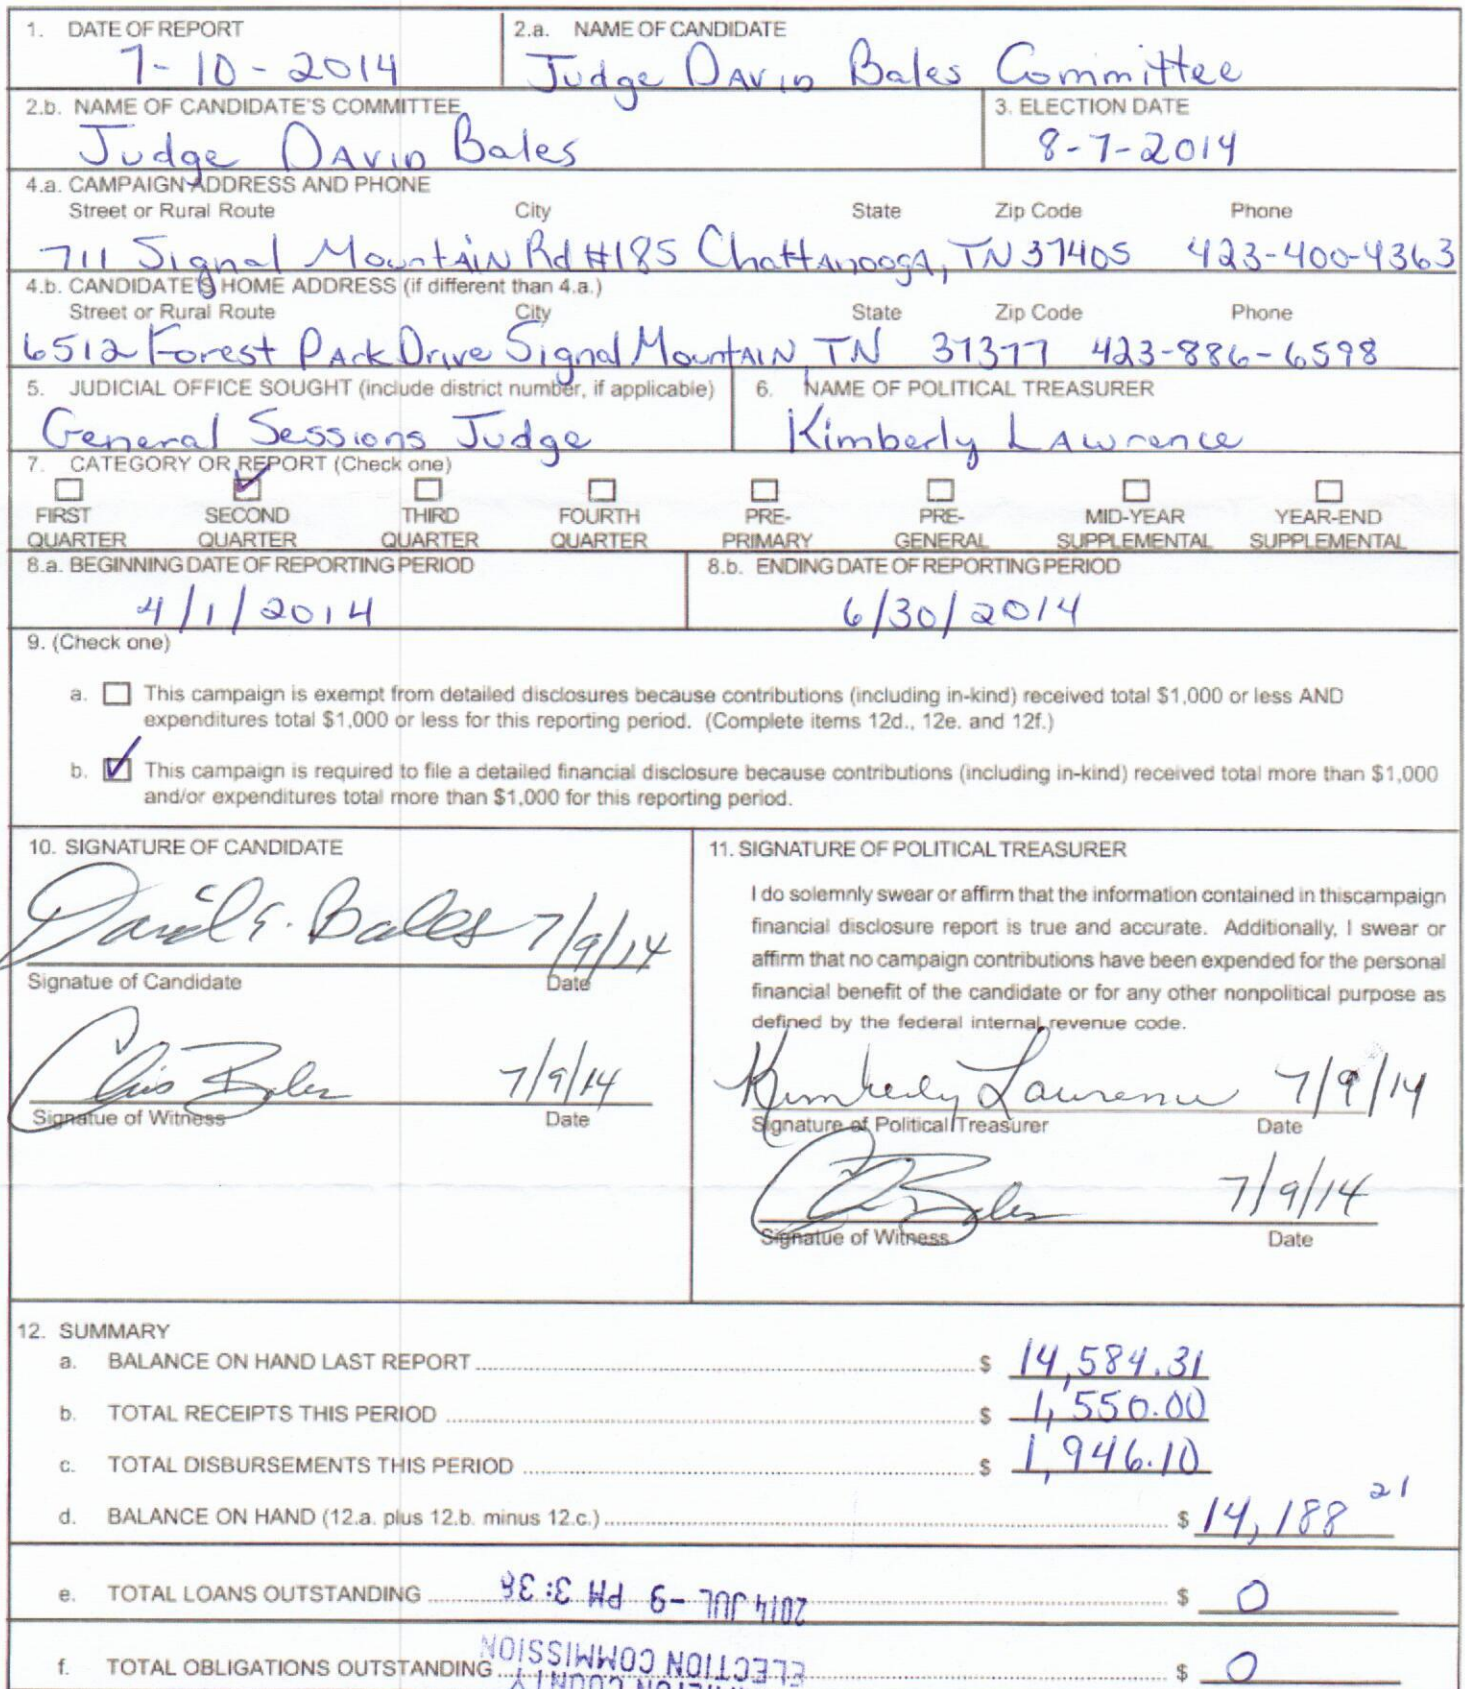 1. DATE OF REPORT
7-10-2014
2.a. NAME OF CANDIDATE
Judge David Bales Committee
2.b. NAME OF CANDIDATE'S COMMITTEE
Judge David Bales
3. ELECTION DATE
8-7-2014
4.a. CAMPAIGN ADDRESS AND PHONE
Street or Rural Route City State Zip Code Phone
711 Signal Mountain Rd #185 Chattanooga, TN 37405 423-400-4363
4.b. CANDIDATE'S HOME ADDRESS (if different than 4.a.)
Street or Rural Route City State Zip Code Phone
6512 Forest Park Drive Signal Mountain TN 37377 423-886-6598
5. JUDICIAL OFFICE SOUGHT (include district number, if applicable)
General Sessions Judge
6. NAME OF POLITICAL TREASURER
Kimberly Lawrence
7. CATEGORY OR REPORT (Check one)
FIRST QUARTER
SECOND QUARTER
THIRD QUARTER
FOURTH QUARTER
PRE-PRIMARY
PRE-GENERAL
MID-YEAR SUPPLEMENTAL
YEAR-END SUPPLEMENTAL
8.a. BEGINNING DATE OF REPORTING PERIOD
4/1/2014
8.b. ENDING DATE OF REPORTING PERIOD
6/30/2014
9. (Check one)
a. This campaign is exempt from detailed disclosures because contributions (including in-kind) received total $1,000 or less AND
expenditures total $1,000 or less for this reporting period. (Complete items 12d., 12e. and 12f.)
b. This campaign is required to file a detailed financial disclosure because contributions (including in-kind) received total more than $1,000
and/or expenditures total more than $1,000 for this reporting period.
10. SIGNATURE OF CANDIDATE
David E. Bales 7/9/14
Signatue of Candidate Date
Chris Bales 7/9/14
Signatue of Witness Date
11. SIGNATURE OF POLITICAL TREASURER
I do solemnly swear or affirm that the information contained in thiscampaign
financial disclosure report is true and accurate. Additionally, I swear or
affirm that no campaign contributions have been expended for the personal
financial benefit of the candidate or for any other nonpolitical purpose as
defined by the federal internal revenue code.
Kimberly Lawrence 7/9/14
Signature of Political Treasurer Date
Bales 7/9/14
Signatue of Witness Date
12. SUMMARY
a. BALANCE ON HAND LAST REPORT $ 14,584.31
b. TOTAL RECEIPTS THIS PERIOD $ 1,550.00
c. TOTAL DISBURSEMENTS THIS PERIOD $ 1,946.10
d. BALANCE ON HAND (12.a. plus 12.b. minus 12.c.) $ 14,188 21
e. TOTAL LOANS OUTSTANDING $ 0
2014 JUL -9 PM 3:38
f. TOTAL OBLIGATIONS OUTSTANDING $ 0
ELECTION COMMISSION
COUNTY